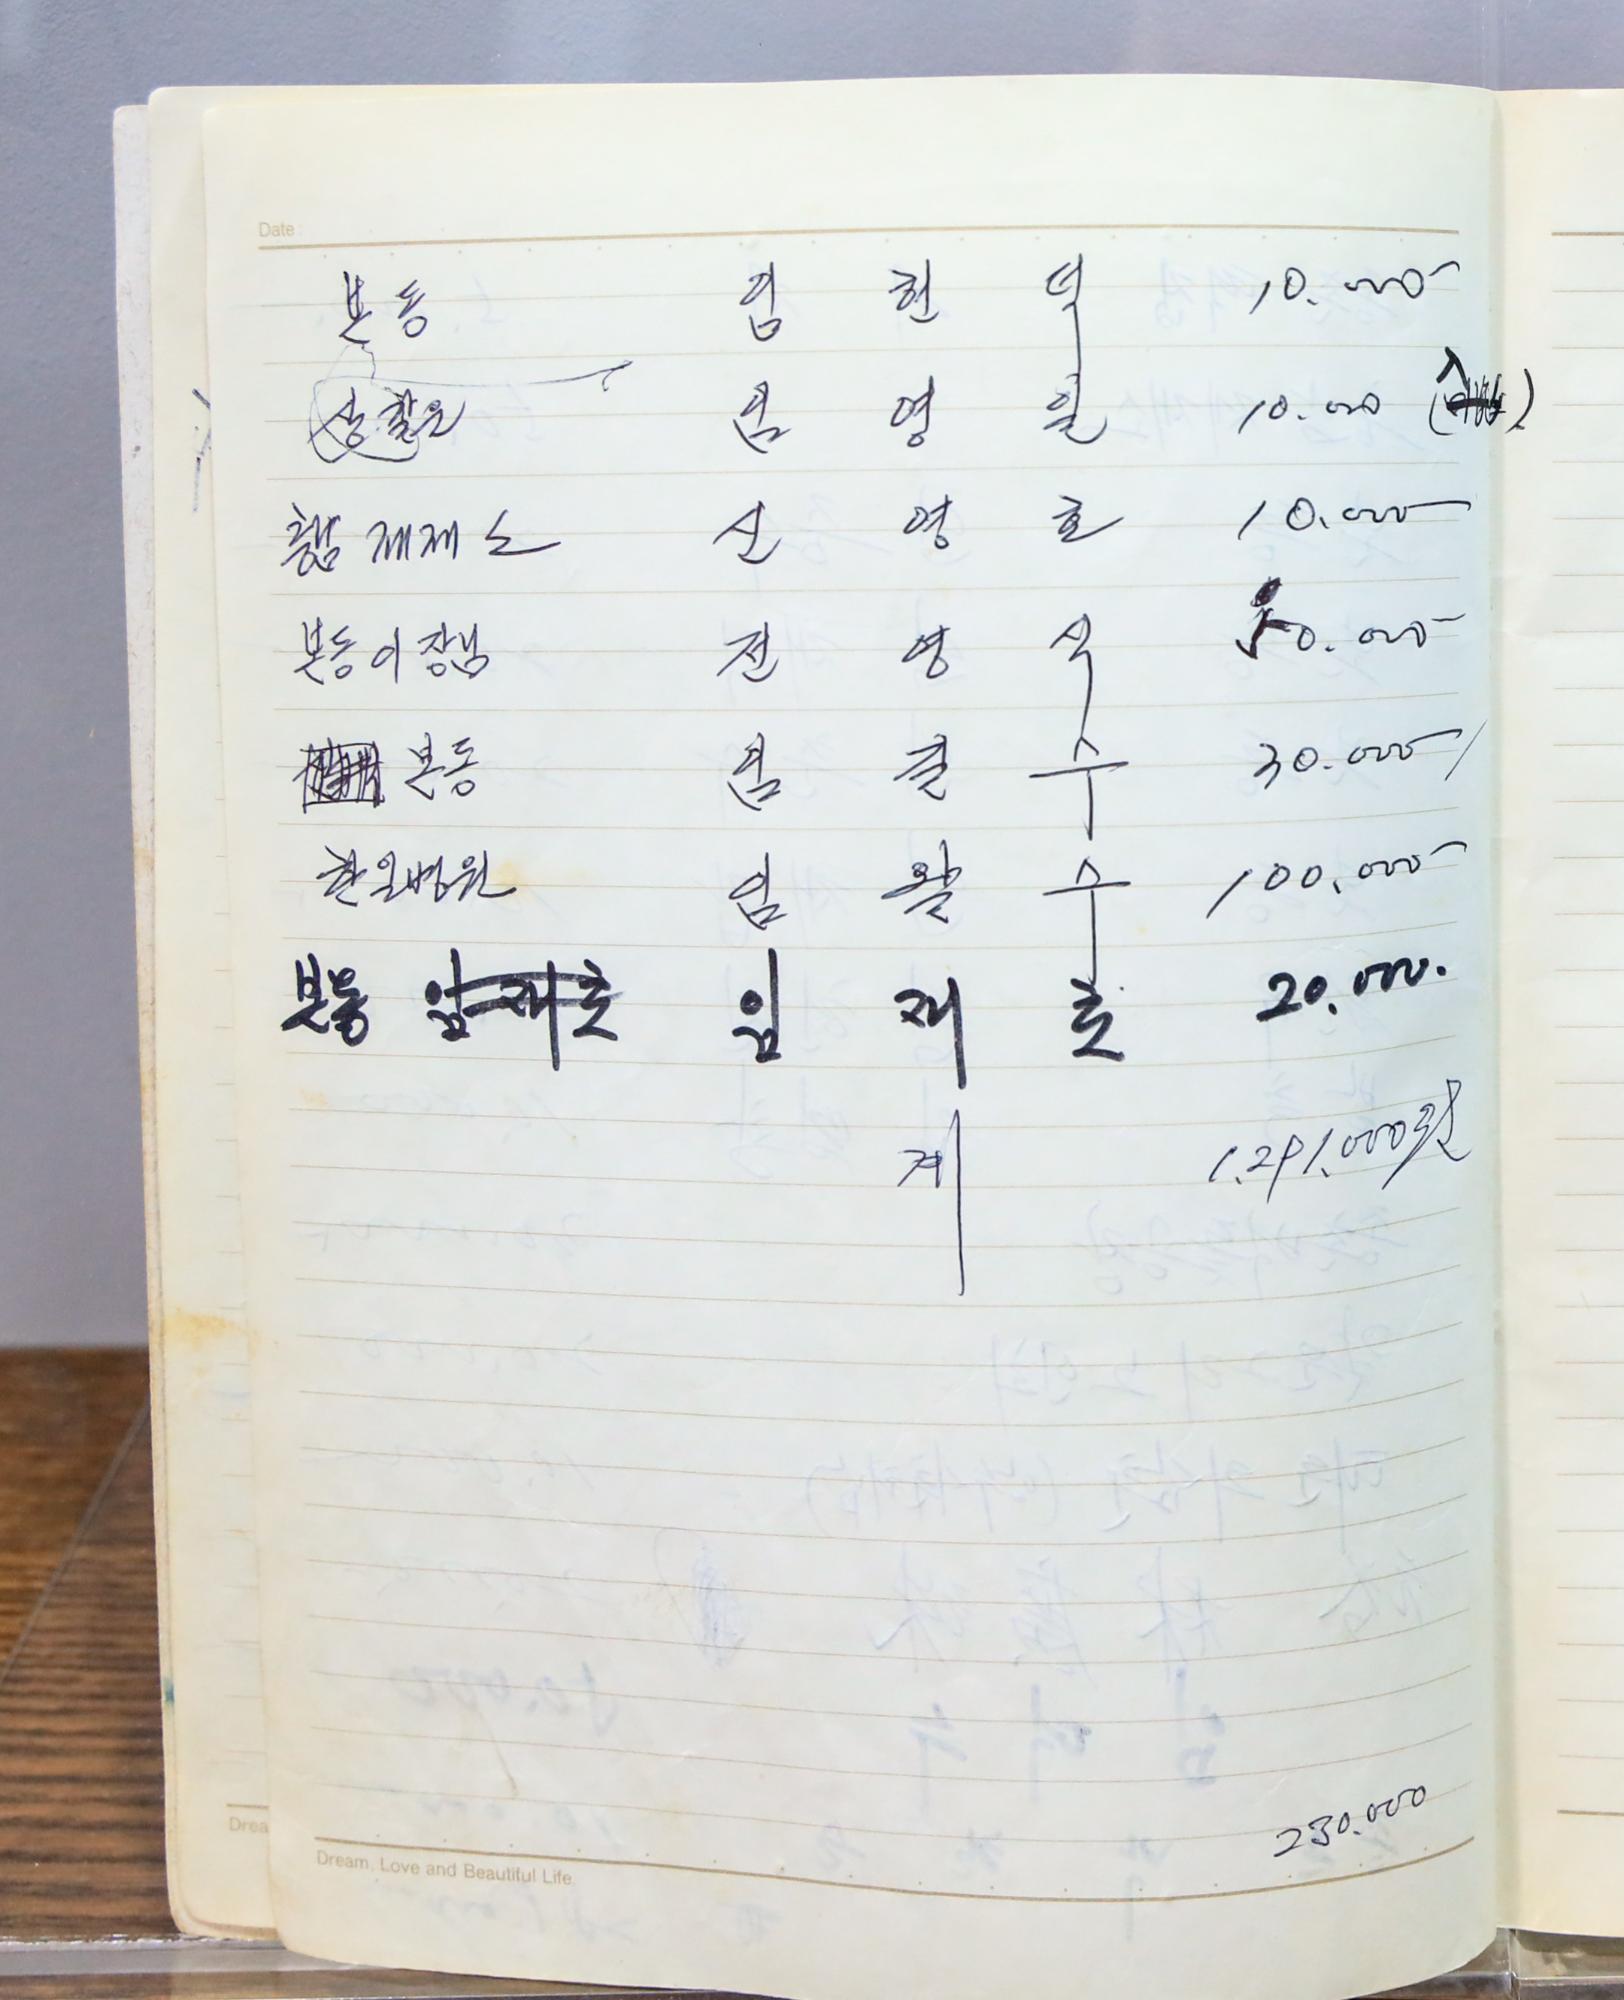 Date:
본동 임 헌 덕 10.000
상촬운 임 영 길 10.000
제재소 신 영 호 10.000
본동이장님 전 영 식 50.000
본동 임 글 수 30.000
한일병원 임 활 수 100.000
본동 임재호 임 재 호 20.000.
계 1.291.000원
230.000
Dream, Love and Beautiful Life.
Drea